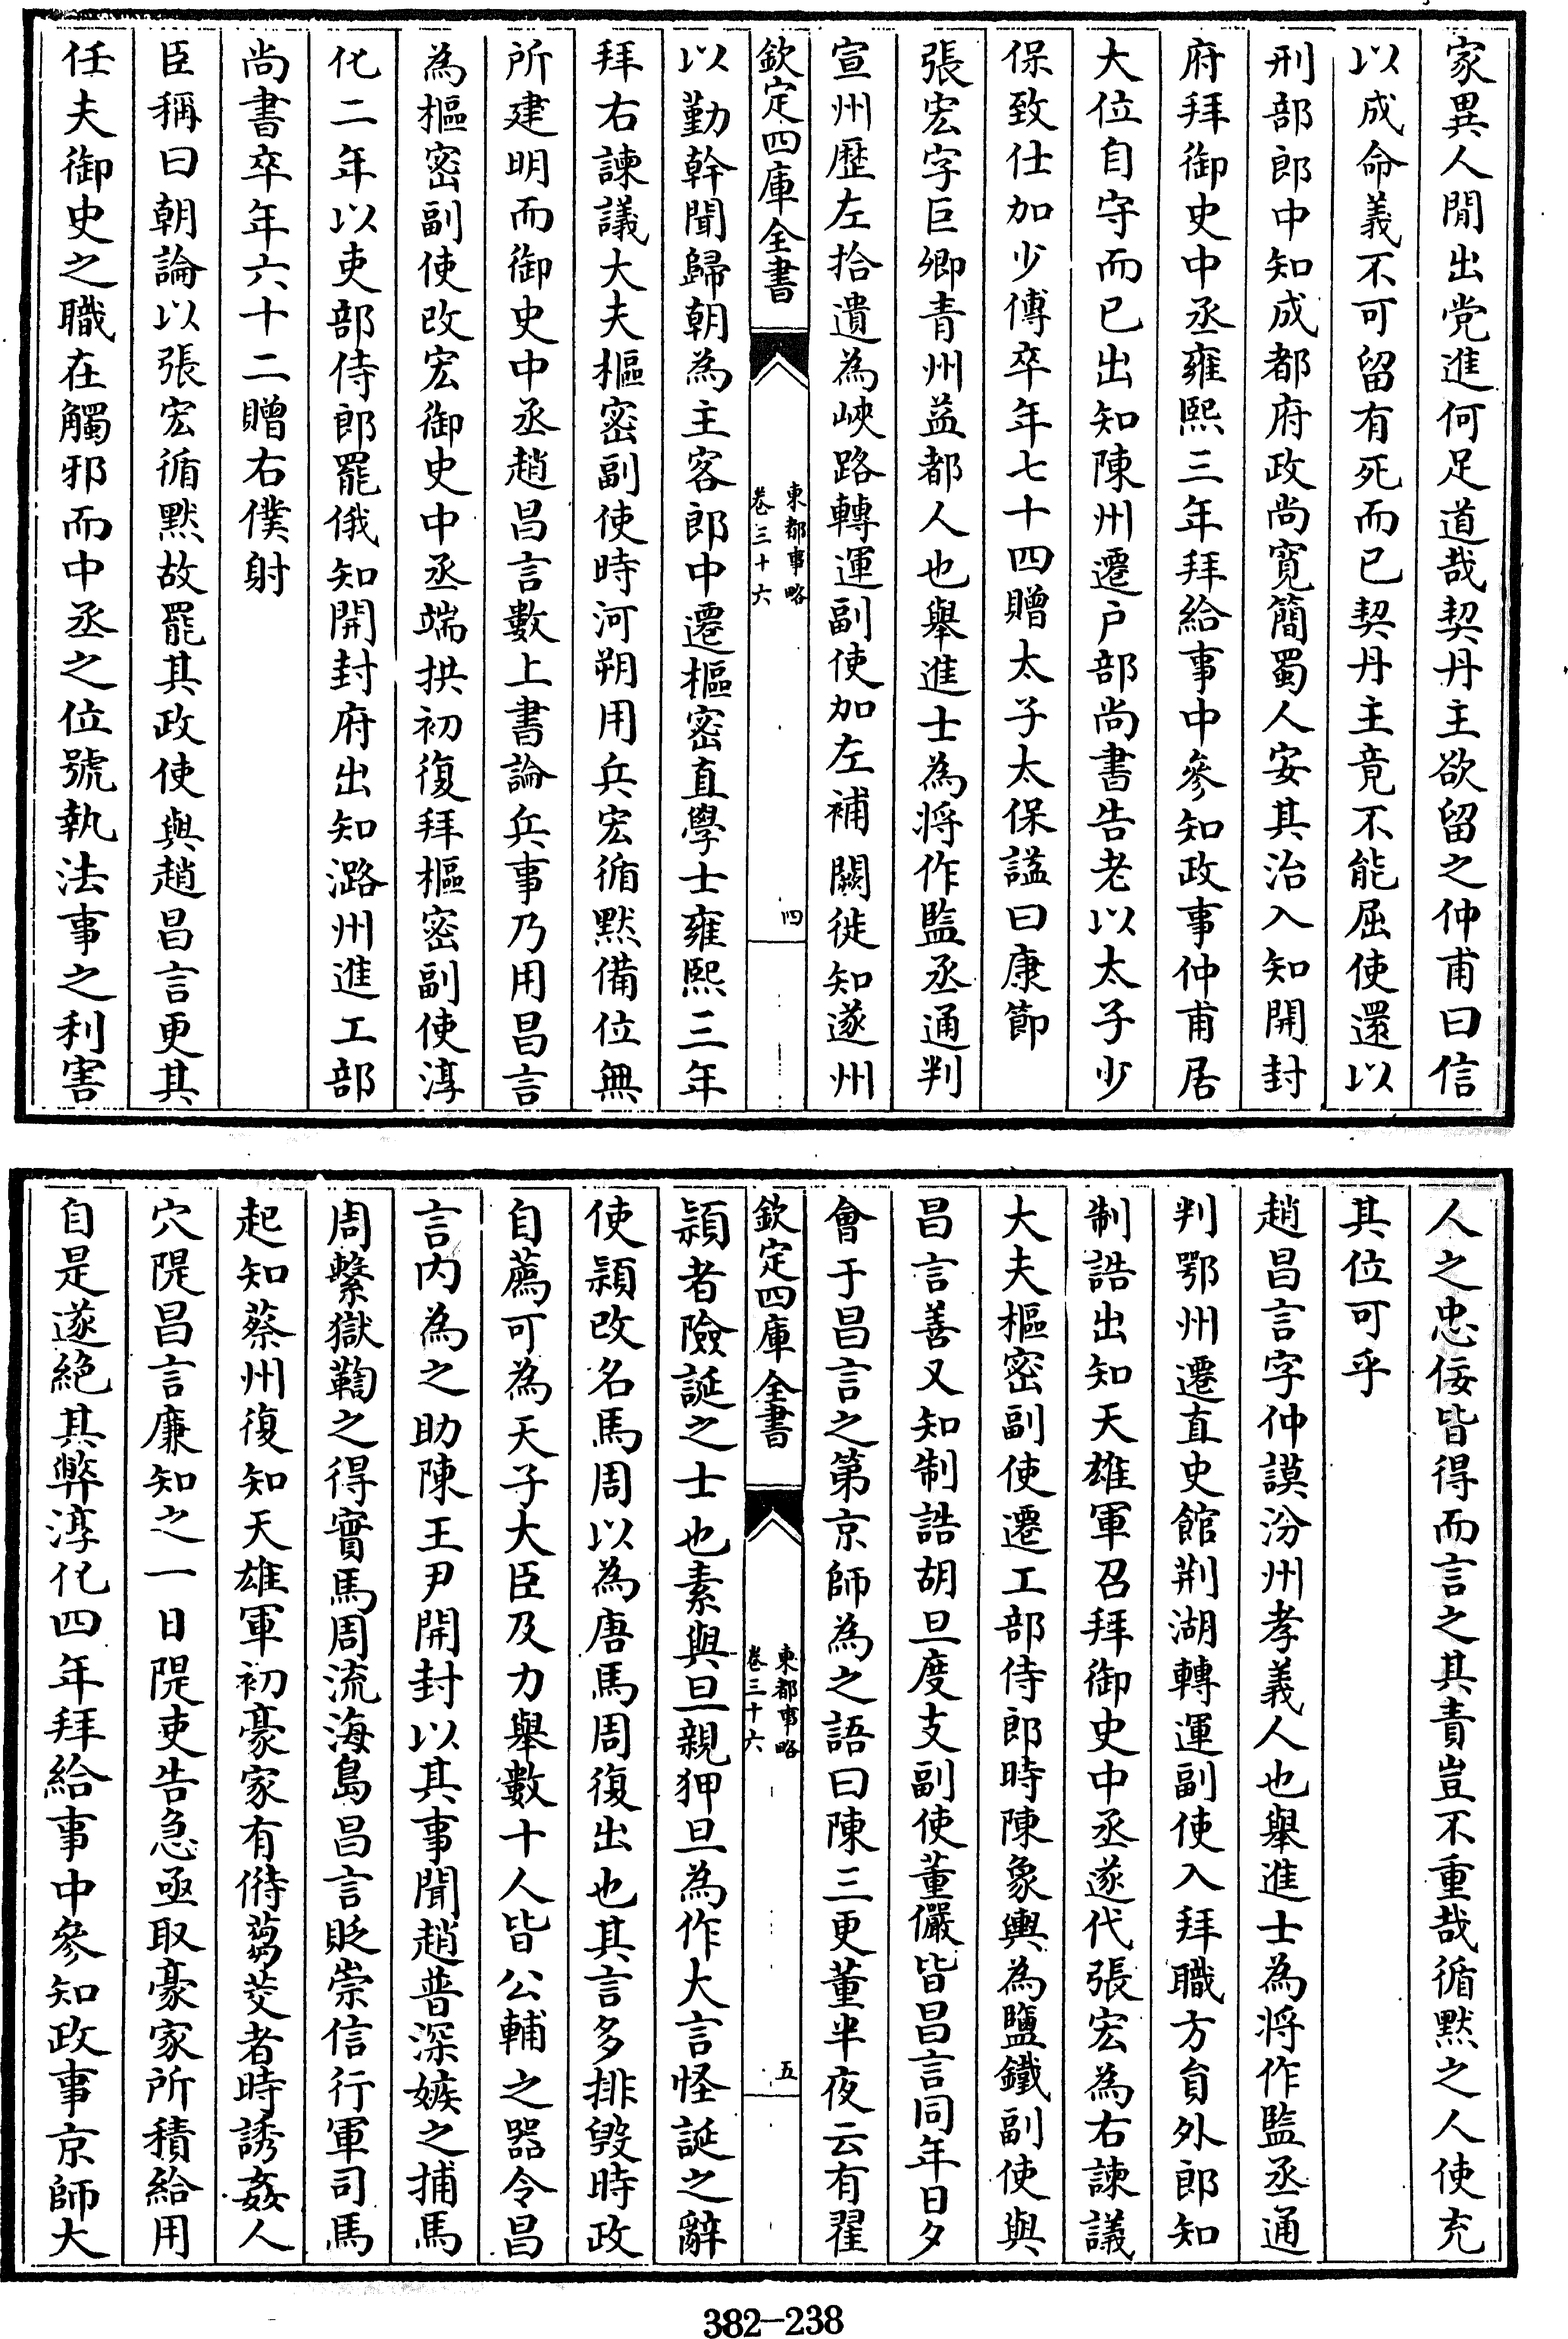 家異人間出党進何足道哉契丹主欲留之仲甫曰信
以成命義不可留有死而已契丹主竟不能屈使還以
刑部郎中知成都府政尚寛簡蜀人安其治入知開封
府拜御史中丞雍熙三年拜給事中參知政事仲甫居
大位自守而已出知陳州遷户部尚書告老以太子少
保致仕加少傅卒年七十四贈太子太保諡曰康節
張宏字巨卿青州益都人也舉進士為將作監丞通判
宣州歴左拾遺為峽路轉運副使加左補闕徙知遂州
欽定四庫全書
東都事略
卷三十六
四
以勤幹聞歸朝為主客郎中遷樞密直學士雍熙三年
拜右諫議大夫樞密副使時河朔用兵宏循黙備位無
所建明而御史中丞趙昌言數上書論兵事乃用昌言
為樞密副使改宏御史中丞端拱初復拜樞密副使淳
化二年以吏部侍郎罷俄知開封府出知潞州進工部
尚書卒年六十二贈右僕射
臣稱曰朝論以張宏循黙故罷其政使與趙昌言更其
任夫御史之職在觸邪而中丞之位號執法事之利害
人之忠佞皆得而言之其責豈不重哉循黙之人使充
其位可乎
趙昌言字仲謨汾州孝義人也舉進士為將作監丞通
判鄂州遷直史館荆湖轉運副使入拜職方員外郎知
制誥出知天雄軍召拜御史中丞遂代張宏為右諫議
大夫樞密副使遷工部侍郎時陳象輿為鹽鐵副使與
昌言善又知制誥胡旦度支副使董儼皆昌言同年日夕
會于昌言之第京師為之語曰陳三更董半夜云有翟
欽定四庫全書
東都事略
卷三十六
五
頴者險誕之士也素與旦親狎旦為作大言怪誕之辭
使頴改名馬周以為唐馬周復出也其言多排毀時政
自薦可為天子大臣及力舉數十人皆公輔之器令昌
言内為之助陳王尹開封以其事聞趙普深嫉之捕馬
周繫獄鞫之得實馬周流海島昌言貶崇信行軍司馬
起知蔡州復知天雄軍初豪家有偫蒭茭者時誘姦人
穴隄昌言廉知之一日隄吏告急亟取豪家所積給用
自是遂絶其弊淳化四年拜給事中參知政事京師大
382-238